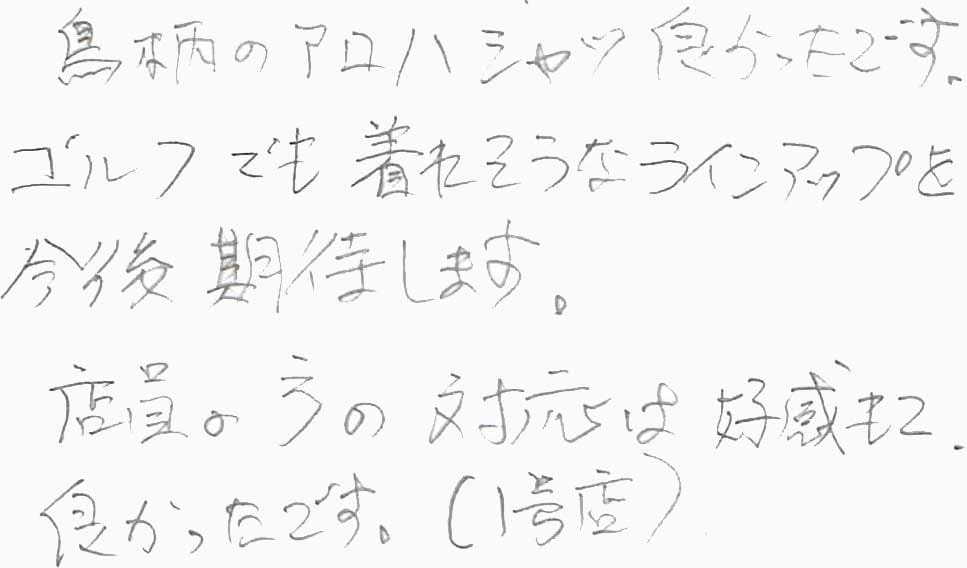 鳥柄のアロハシャツ良かったです。
ゴルフでも着れそうなラインアップを
今後期待します。
店員の方の対応は好感もて、
良かったです。(1号店)